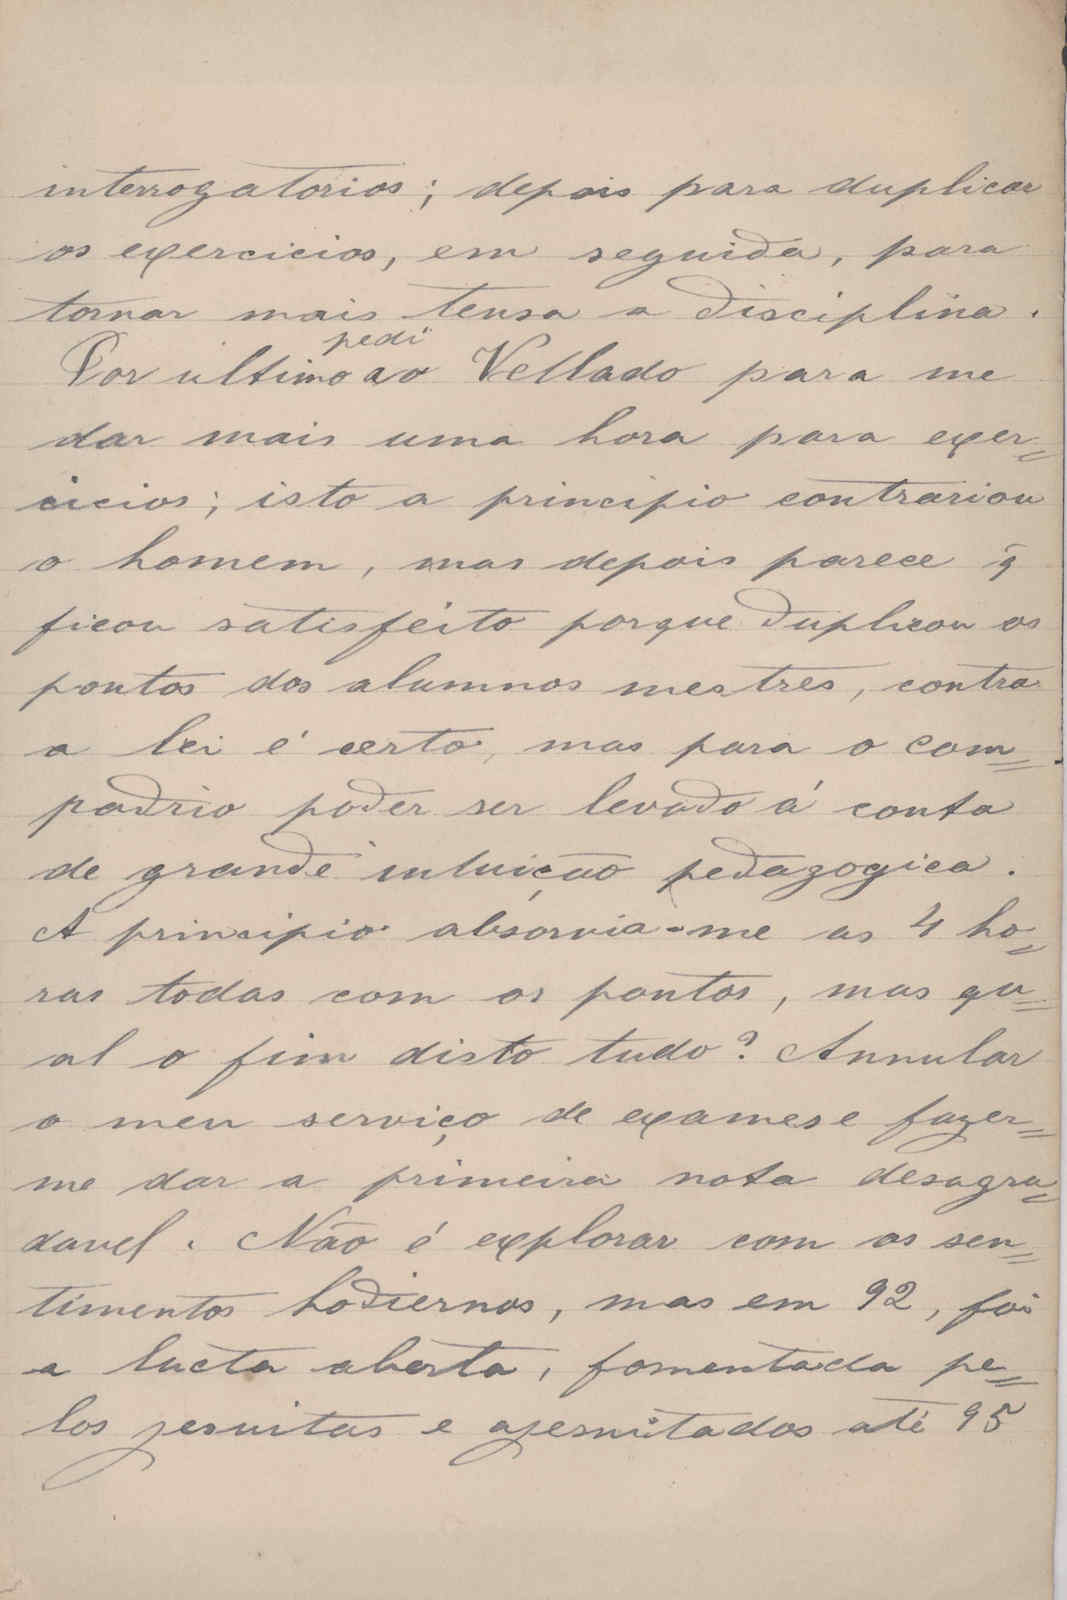 interrogatorios; depois para duplicar
os exercicios, em seguida, para
tornar mais tensa a disciplina.
pedi
Por ultimo ao Vellado para me
dar mais uma hora para exer=
cicios; isto a principio contrariou
o homem, mas depois parece q̃
ficou satisfeito porque duplicou os
pontos dos alumnos mestres, contra
a lei é certo, mas para o com=
padrio poder ser levado á conta
de grande intuição pedagogica.
A principio absorvia-me as 4 ho=
ras todas com os pontos, mas qu=
al o fim disto tudo? Annular
o meu serviço de exames e fazer=
me dar a primeira nota desagra=
davel. Não é explorar com os sen=
timentos hodiernos, mas em 92, foi
a lucta aberta, fomentada pe=
los jesuitas e ajesuitados até 95